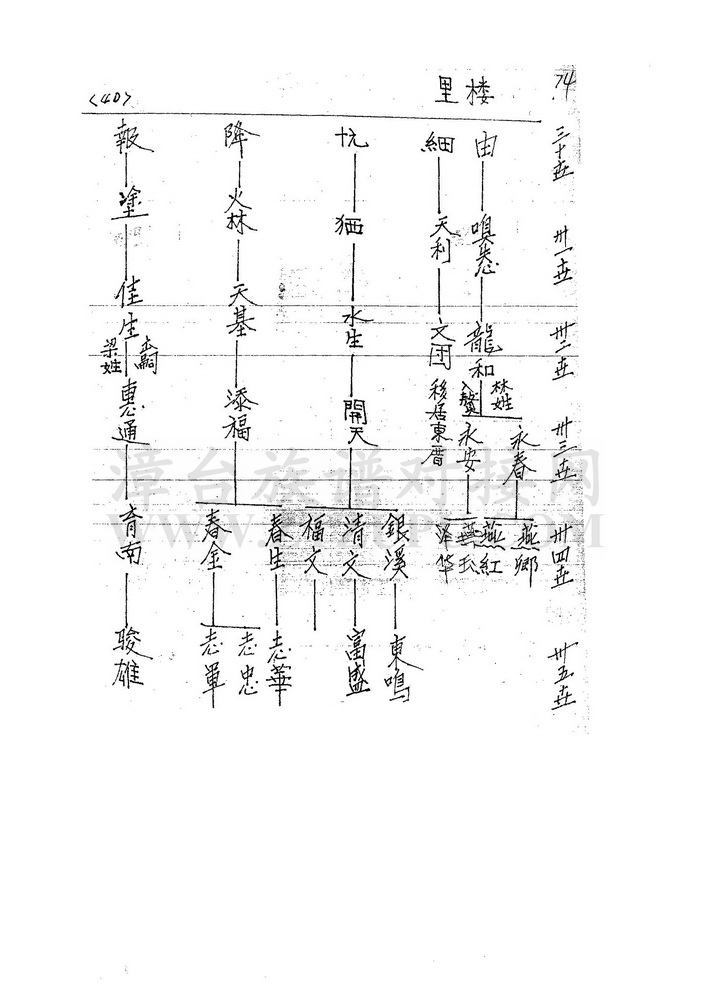 74
楼里
<40>
三十世
卅一世
卅二世
卅三世
卅四世
卅五世
由
嗅
龍和
林姓
入贅
永春
永安
燕鄉
燕紅
燕玉
泽华
細
天利
文团
移居東厝
忼
猫
水生
開天
銀溪
清文
福文
東鳴
富盛
降
火林
天基
添福
春生
春金
志華
志忠
志軍
報
塗
佳生
梁姓
惠通
育南
駿雄
漳台族谱对接网